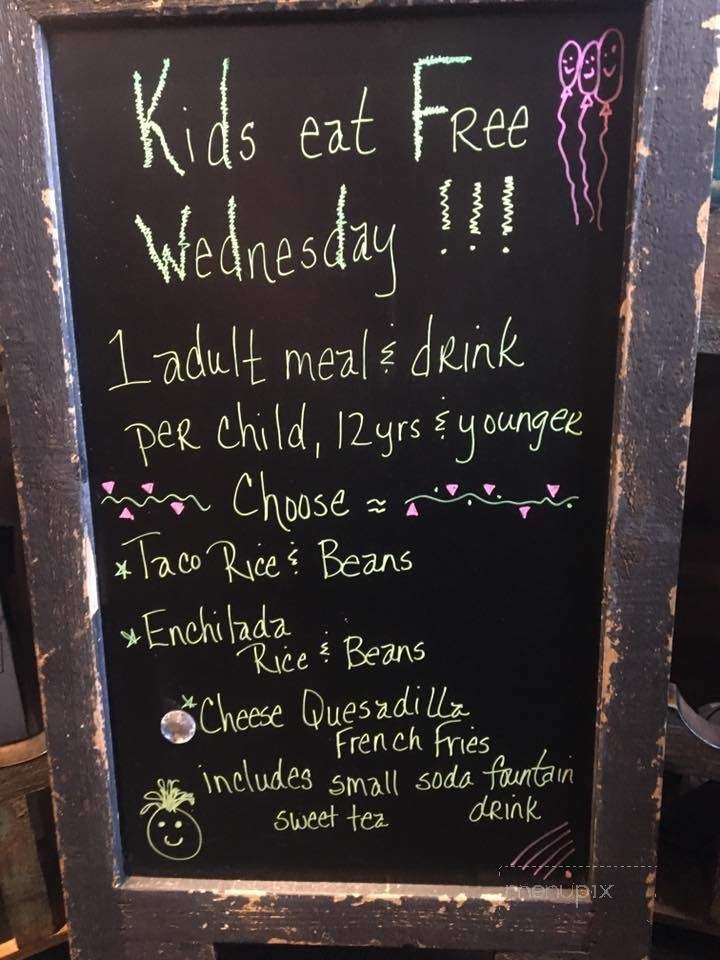 Kids eat Free
Wednesday !!!
1 adult meal & drink
per child, 12yrs & younger
Choose ≈
* Taco Rice & Beans
* Enchilada
Rice & Beans
* Cheese Quesadilla
French Fries
includes small soda fountain
sweet tea drink
menupix